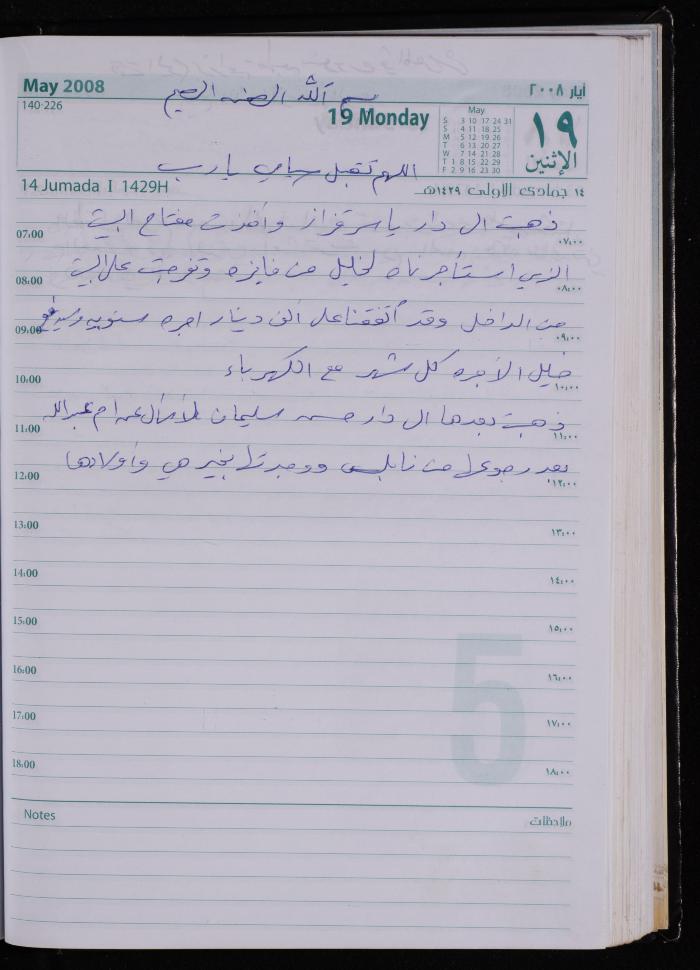 May 2008
أيار ٢٠٠٨
بسم الله الرحمن الرحيم
140-226
19 Monday
May
S 3 10 17 24 31
S 4 11 18 25
M 5 12 19 26
T 6 13 20 27
W 7 14 21 28
T 1 8 15 22 29
F 2 9 16 23 30
١٩
الإثنين
اللهم تقبل يا رب
14 Jumada I 1429H
١٤ جمادى الاولى ١٤٢٩هـ
ذهبت الى دار ياسر قزاز وأخذت مفتاح البيت
07:00
٠٧:٠٠
الذي استأجرناه لخليل من فايزه وتفرجت على البيت
08:00
٠٨:٠٠
من الداخل وقد أتفقنا على الف دينار اجره سنويه
09:00
٠٩:٠٠
خليل الأجره كل شهر مع الكهرباء
10:00
١٠:٠٠
ذهبت بعدها الى دار سليمان ام عبدالله
11:00
١١:٠٠
بعد رجوعها من نابلس ووجدتها بخير هي وأولادها
12:00
١٢:٠٠
13:00
١٣:٠٠
14:00
١٤:٠٠
15:00
١٥:٠٠
16:00
١٦:٠٠
17:00
١٧:٠٠
18:00
١٨:٠٠
5
Notes
ملاحظات